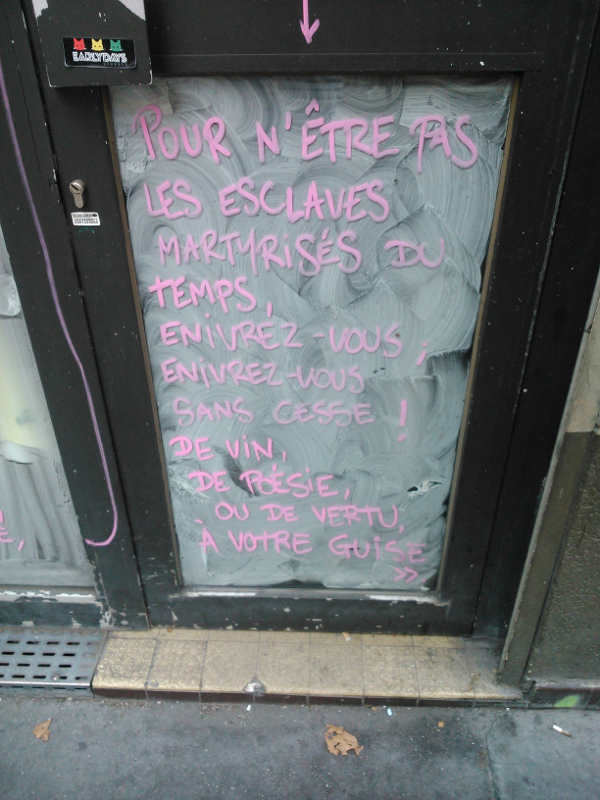 EARLYDAYS
POUR N'ÊTRE PAS
LES ESCLAVES
MARTYRISÉS DU
TEMPS,
ENIVREZ-VOUS ;
ENIVREZ-VOUS
SANS CESSE !
DE VIN,
DE POÉSIE,
OU DE VERTU,
À VOTRE GUISE
»